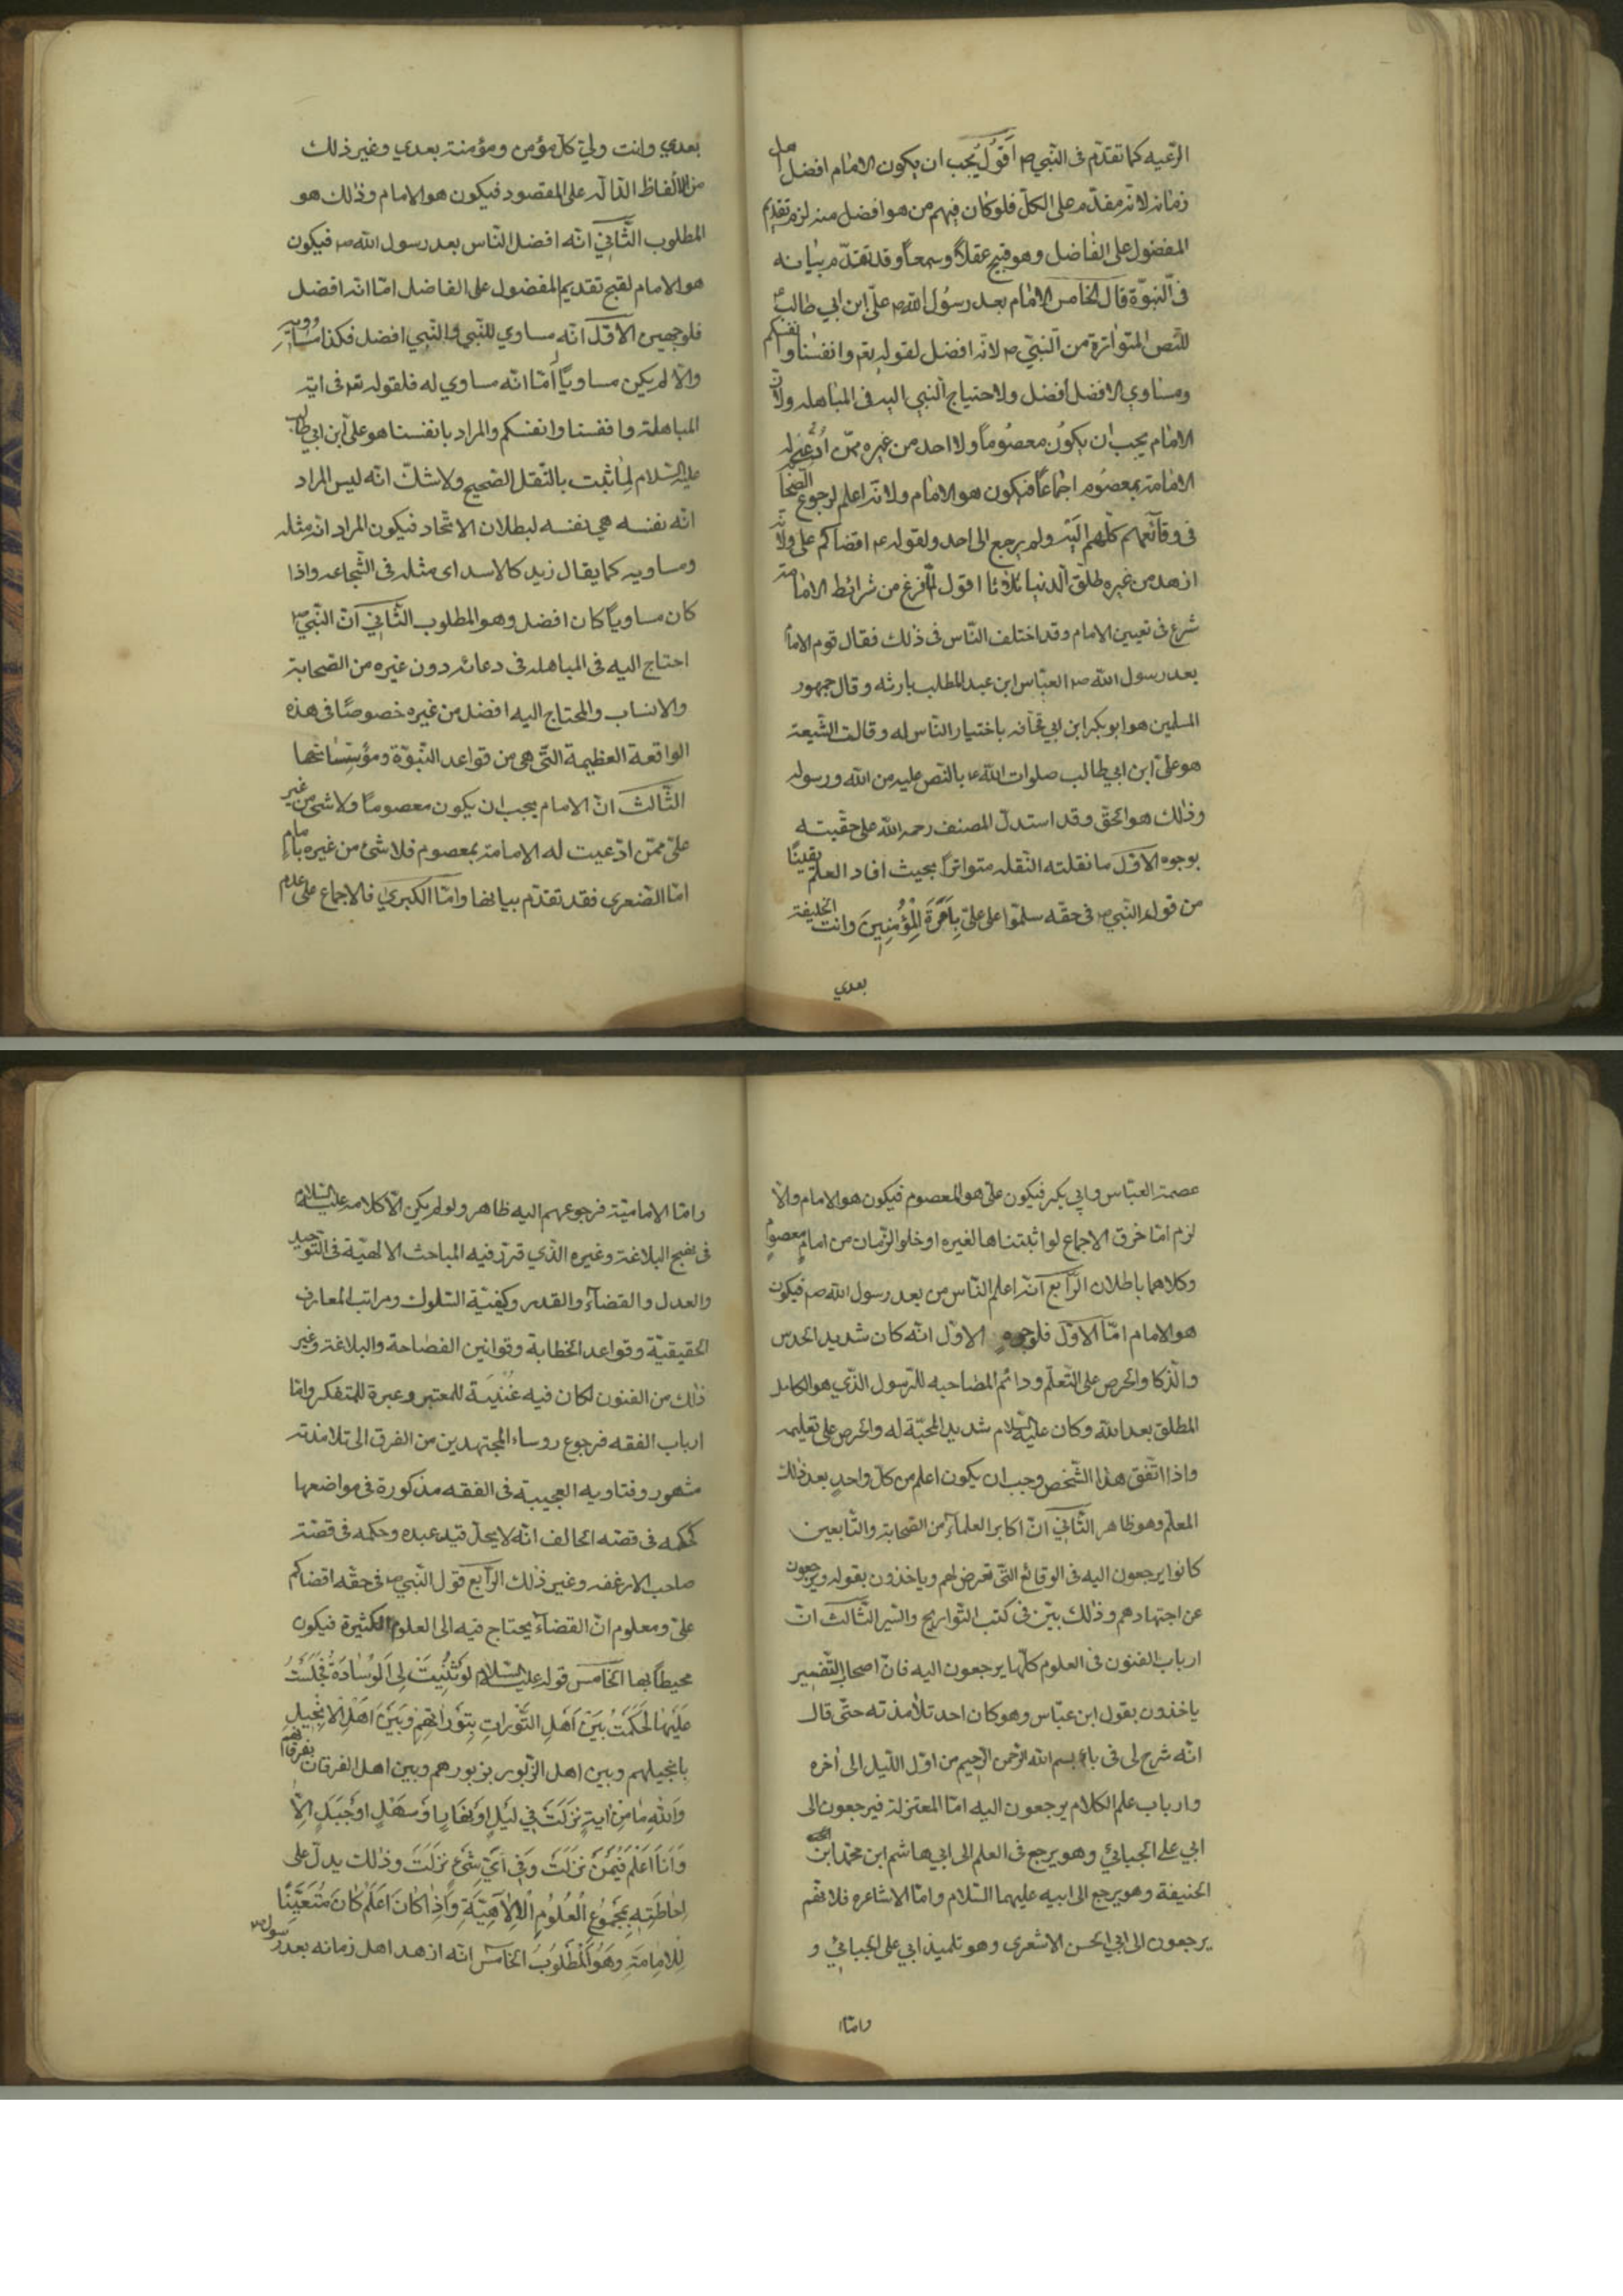 الرّعيه كما تقدّم فى النّبي ص اَقُولُ يُجب ان يكون الامام افضل اهل
زمانه لانّه مقدّم على الكلّ فلو كان فيهم من هو افضل منه لزم تقديم
المفضول على الفاضل وهو قبيح عقلاً وسمعاً وقد تقدّم بيانه
فى النّبوّة قال الخامس الامام بعد رسُول الله ص علىّ ابن ابى طالب ع
للنّص المتواترة من النّبيّ ص لانّه افضل لقوله تع وانفسنا وانفسكم
ومساوي الافضل افضل ولاحتياج النّبي اليه فى المباهله ولانّ
الامام يجب ان يكون معصُوماً ولا احد من غيره ممّن اُدُّعِىَ له
الامامة بمعصُوم اجماعاً فيكون هو الامام ولانّه اعلم لرجوع الصّحابة
فى وقائعهم كلّهم اليه ولم يرجع الى احد ولقوله ع اقضاكم علي ولانّه
ازهد من غيره طلّق الدنيا ثلاثا اقول لمّا فرغ من شرائط الامامة
شرع فى تعيين الامام وقد اختلف النّاس فى ذلك فقال قوم الامام
بعد رسول الله ص العبّاس ابن عبد المطلب بارثه وقال جمهور
المسلمين هو ابو بكر ابن ابي قحافه باختيار النّاس له وقالت الشّيعة
هو علىّ ابن ابي طالب صلوات الله ع بالنّص عليه من الله ورسوله
وذلك هو الحقّ وقد استدلّ المصنف رحمه الله على حقّيته
بوجوه الاوّل ما نقلته النّقله متواتراً بحيث افاد العلم يقينًا
من قول النّبي ص فى حقّه سلّموا على علىّ بِاَمْرَةِ الْمُؤْمِنِينَ وانت الخليفة
بعدي
بعدي وانت ولىّ كلّ مؤمن ومؤمنة بعدي وغير ذلك
من الالفاظ الدّالّه على المقصود فيكون هو الامام وذلك هو
المطلوب الثّاني انّه افضل النّاس بعد رسول الله ص فيكون
هو الامام لقبح تقديم المفضول على الفاضل امّا انّه افضل
فلوجهين الاوّل انّه مساوي للنّبي والنّبي افضل فكذا مساويه
والّا لم يكن مساوياً اَمّا انّه مساوي له فلقوله تع فى اية
المباهلة وانفسنا وانفسكم والمراد بانفسنا هو علىّ ابن ابي طالب
عليه السّلام لِما ثبت بالنّقل الصّحيح ولا شكّ انّه ليس المراد
انّه نفسه هى نفسه لبطلان الاتّحاد فيكون المراد انّه مثله
ومساويه كما يقال زيد كالاسد اى مثله فى الشّجاعه واذا
كان مساوياً كان افضل وهو المطلوب الثّاني اَنّ النّبيّ ص
احتاج اليه فى المباهله فى دعائه دون غيره من الصّحابة
والانساب والمحتاج اليه افضل من غيره خصوصًا فى هذه
الواقعة العظيمة الّتى هى من قواعد النّبوّة ومؤسّساتها
الثّالث انّ الامام يجب ان يكون معصوماً ولا شئ من غير
علىّ ممّن ادّعيت له الامامة بمعصوم فلا شئ من غيره بامام
امّا الصّغرى فقد تقدّم بيانها وامّا الكبرى فالاجماع على عدم
عصمة العبّاس وابي بكر فيكون علىّ هو المعصوم فيكون هو الامام والّا
لزم امّا خرق الاجماع لو اثبتناها لغيره او خلو الزّمان من امامٍ معصومٍ
وكلاهما باطلان الرّابع انّه اعلم النّاس من بعد رسول الله ص فيكون
هو الامام امّا الاوّل فلوجوهٍ الاوّل انّه كان شديد الحدس
والذّكا والحرص على التّعلّم ودائم المصاحبه للرّسول الّذي هو الكامل
المطلق بعد الله وكان عليه السّلام شديد المحبّة له والحرص على تعليمه
واذا اتّفق هذا الشّخص وجب ان يكون اعلم من كلّ واحدٍ بعد ذلك
المعلّم وهو ظاهر الثّاني انّ اكابر العلماء من الصّحابة والتّابعين
كانوا يرجعون اليه فى الوقائع الّتى تعرض لهم وياخذون بقوله ويرجعون
عن اجتهادهم وذلك بيّن فى كتب التّواريخ والسّير الثّالث انّ
ارباب الفنون فى العلوم كلّها يرجعون اليه فانّ اصحاب التّفسير
ياخذون بقول ابن عبّاس وهو كان احد تلامذته حتّى قال
انّه شرح لى فى باء بسم الله الرّحمن الرّحيم من اوّل اللّيل الى اٰخره
وارباب علم الكلام يرجعون اليه امّا المعتزلة فيرجعون الى
ابي على الجبائيّ وهو يرجع فى العلم الى ابي هاشم ابن محمّد ابن
الحنيفة وهو يرجع الى ابيه عليهما السّلام وامّا الاشاعره فلانّهم
يرجعون الى ابي الحسن الاشعرى وهو تلميذ ابي على الجبائيّ و
وامّا
وامّا الاماميّة فرجوعهم اليه ظاهر ولو لم يكن الّا كلامه عليه السّلام
فى نهج البلاغة وغيره الّذي قرّر فيه المباحث الالهيّة فى التّوحيد
والعدل والقضاء والقدر وكيفيّة السّلوك ومراتب المعارف
الحقيقيّة وقواعد الخطابة وقوانين الفصاحة والبلاغة وغير
ذلك من الفنون لكان فيه غنية للمعتبر وعبرة للمتفكر وامّا
ارباب الفقه فرجوع روساء المجتهدين من الفرق الى تلامذته
مشهور وفتاويه العجيبة فى الفقه مذكورة فى مواضعها
كحكمه فى قصّه الحالف انّه لا يحلّ قيد عبده وحكمه فى قصّة
صاحب الارغفه وغير ذلك الرّابع قول النّبي ص فى حقّه اقضاكم
علىّ ومعلوم انّ القضاء يحتاج فيه الى العلوم الكثيرة فيكون
محيطاً بها الخامس قوله عليه السّلام لَوْ ثُنِيَتْ لِى اَلْوِسَادَةُ فَجَلَسْتُ
عَلَيْهَا لَحَكَمْتُ بَيْنَ اَهْلِ التَّوْراتِ بِتَوْراتِهِمْ وَبَيْنَ اَهْلِ الْاِنْجِيلِ
بانجيلهم وبين اهل الزّبور بزبورهم وبين اهل الفرقان بفرقانهم
وَاللّهِ مَا مِنْ اٰيةٍ نَزَلَتْ فِي لَيْلٍ اَوْ نَهَارٍ اَوْ سَهْلٍ اَوْ جَبَلٍ اِلّا
وَاَنَا اَعْلَمُ فِيْمَنْ نَزَلَتْ وَفِى اَىِّ شَئٍ نَزَلَتْ وذلك يدلّ على
اِحَاطَتِهِ بِمَجْمُوعِ الْعُلُومِ الْاِلٰهِيَّةِ وَاِذَا كَانَ اَعْلَمَ كَانَ مُتَعَيَّنًا
لِلْاِمَامَةِ وَهُوَ الْمَطْلُوبُ الخامس انّه ازهد اهل زمانه بعد رسول ص